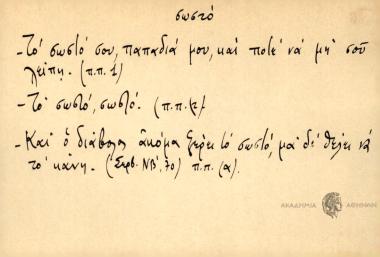 σωστό
- Τό σωστό σου, παπαδιά μου, καί ποτέ νά μή σοῦ
λείπῃ. (π.π. 1)
- Τό σωστό, σωστό. (π.π. 2)
- Καί ὁ διάβολος ἀκόμα ξέρει τό σωστό, μά δέ θέλει νά
τό κάνῃ. (Σερβ. ΝΒ', 70) π.π. (α).
ΑΚΑΔΗΜΙΑ ΑΘΗΝΩΝ